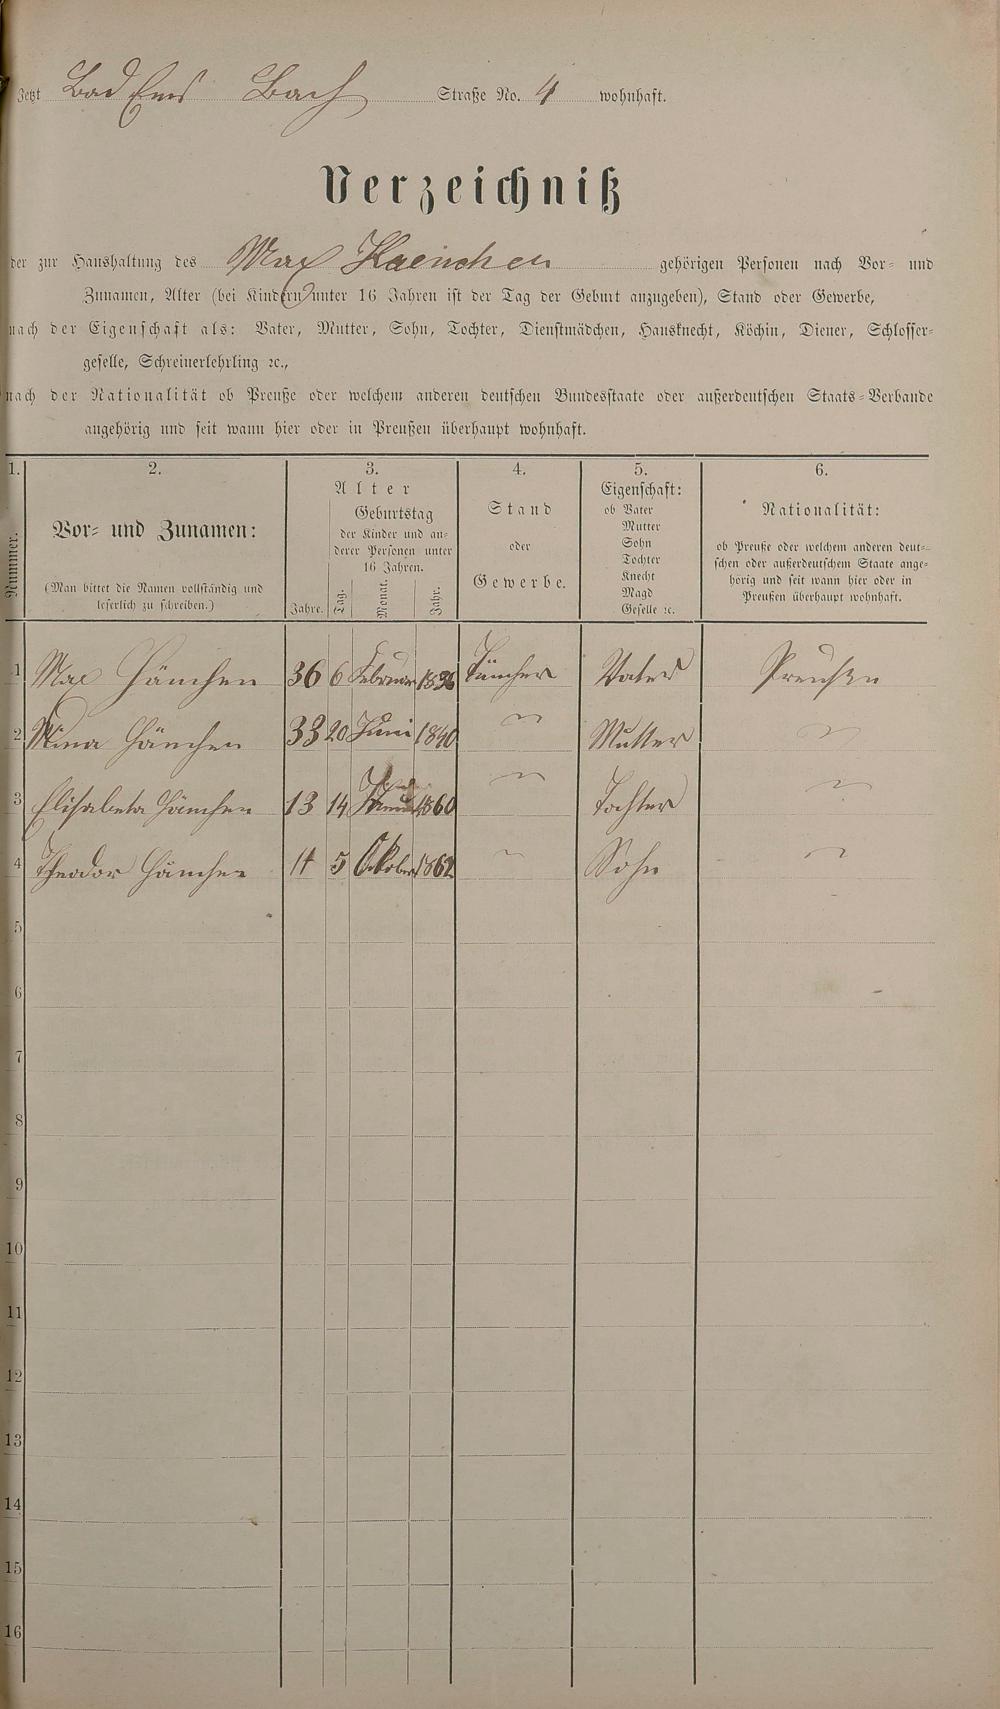 Jetzt Bad Ems Bach Straße No. 4 wohnhaft.
Verzeichniß
der zur Haushaltung des Max Haenchen gehörigen Personen nach Vor- und
Zunamen, Alter (bei Kindern unter 16 Jahren ist der Tag der Geburt anzugeben), Stand oder Gewerbe,
nach der Eigenschaft als: Vater, Mutter, Sohn, Tochter, Dienstmädchen, Hausknecht, Köchin, Diener, Schlosser-
geselle, Schreinerlehrling ꝛc.,
nach der Nationalität ob Preuße oder welchem anderen deutschen Bundesstaate oder außerdeutschen Staats-Verbande
angehörig und seit wann hier oder in Preußen überhaupt wohnhaft.
1.
Nummer.
2.
Vor- und Zunamen:
(Man bittet die Namen vollständig und
leserlich zu schreiben.)
3.
Alter
Geburtstag
der Kinder und an-
derer Personen unter
16 Jahren.
Jahre. Tag. Monat. Jahr.
4.
Stand
oder
Gewerbe.
5.
Eigenschaft:
ob Vater
Mutter
Sohn
Tochter
Knecht
Magd
Geselle ꝛc.
6.
Nationalität:
ob Preuße oder welchem anderen deut-
schen oder außerdeutschem Staate ange-
hörig und seit wann hier oder in
Preußen überhaupt wohnhaft.
1 Max Hänchen 36 6 Februar Tüncher Vater Preußen
2 Mina Hänchen 33 20 Juni 1840 " Mutter "
3 Elisabeta Hänchen 13 14 1860 " Tochter "
4 Theodor Hänchen 11 5 Oktober 1862 " Sohn "
5
6
7
8
9
10
11
12
13
14
15
16